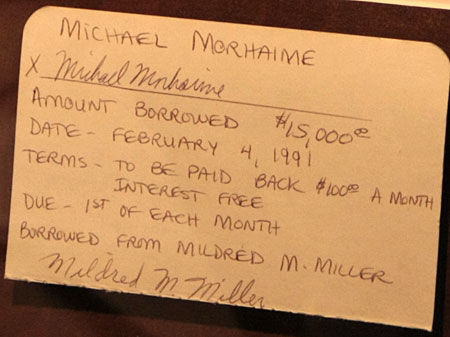 MICHAEL MORHAIME
X Michael Morhaime
AMOUNT BORROWED $15,000.00
DATE - FEBRUARY 4, 1991
TERMS - TO BE PAID BACK $100.00 A MONTH
INTEREST FREE
DUE - 1ST OF EACH MONTH
BORROWED FROM MILDRED M. MILLER
Mildred M. Miller